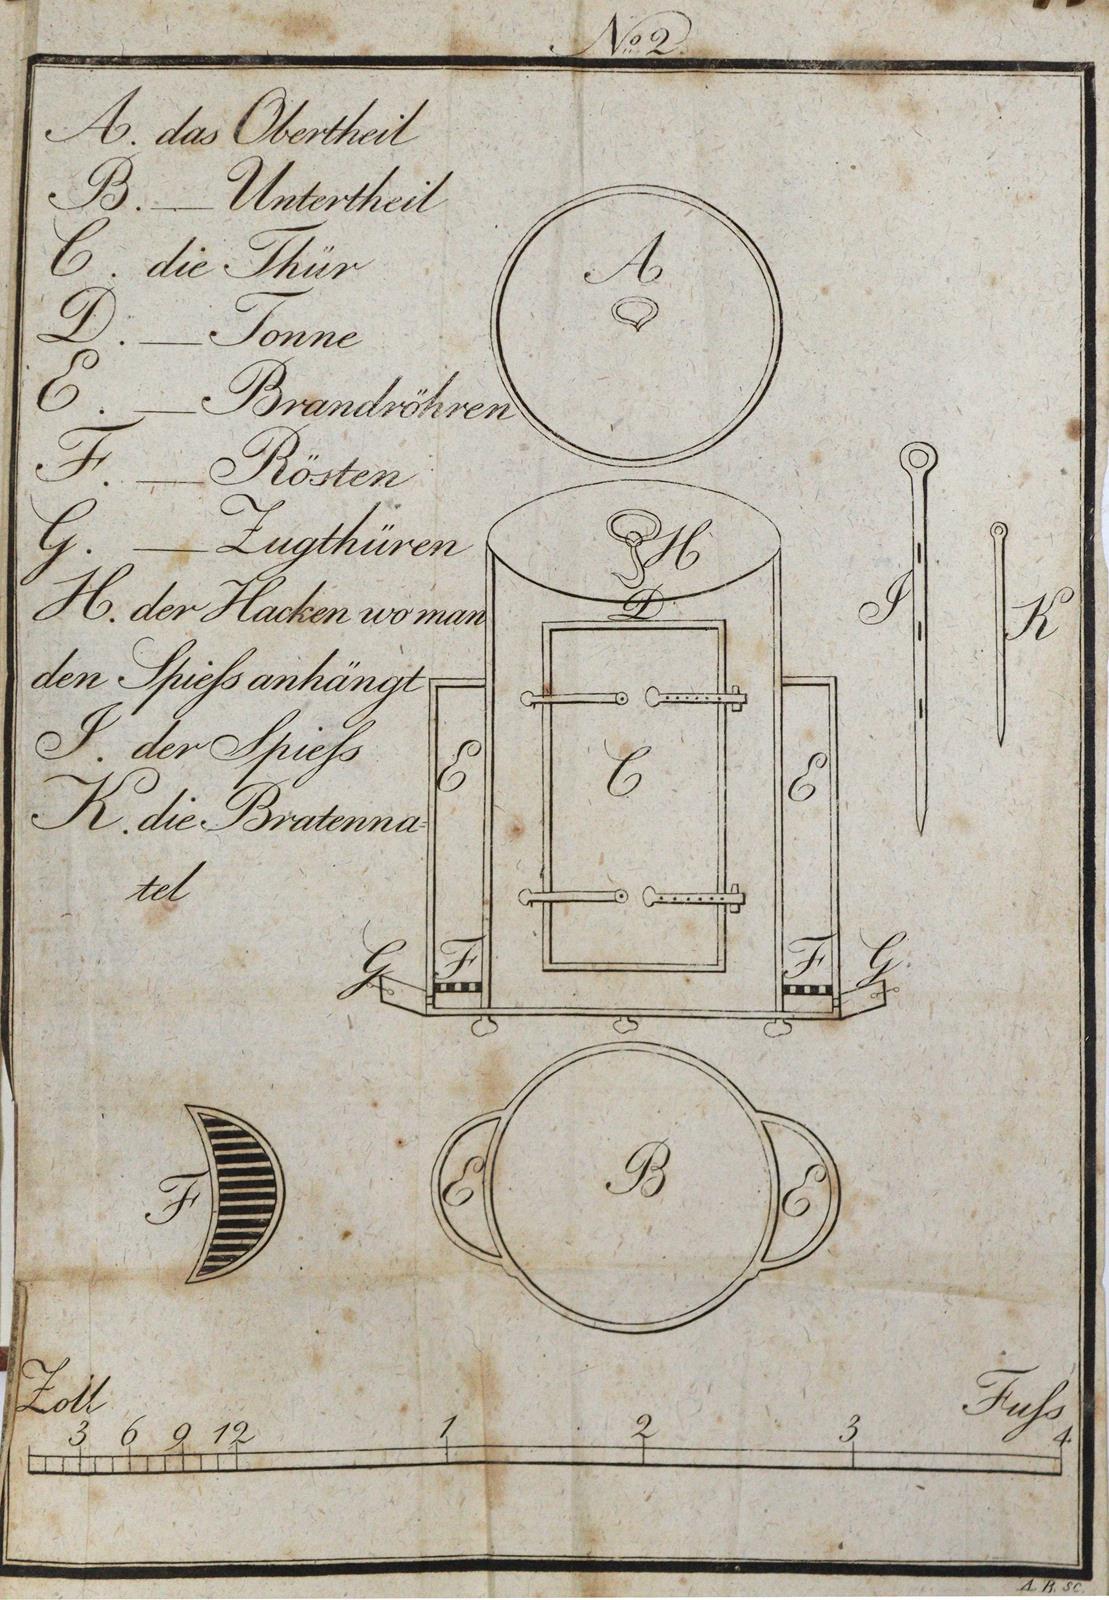 No. 2.
A. das Obertheil
B. — Untertheil
C. die Thür
D. — Tonne
E. — Brandröhren
F. — Rösten
G. — Zugthüren
H. der Hacken wo man
den Spieſs anhängt
I. der Spieſs
K. die Bratenna-
tel
A
H
D
I
K
E
C
E
G
F
F
G.
F
E
B
E
Zoll
Fuſs
3 6 9 12 1 2 3 4
A. R. sc.